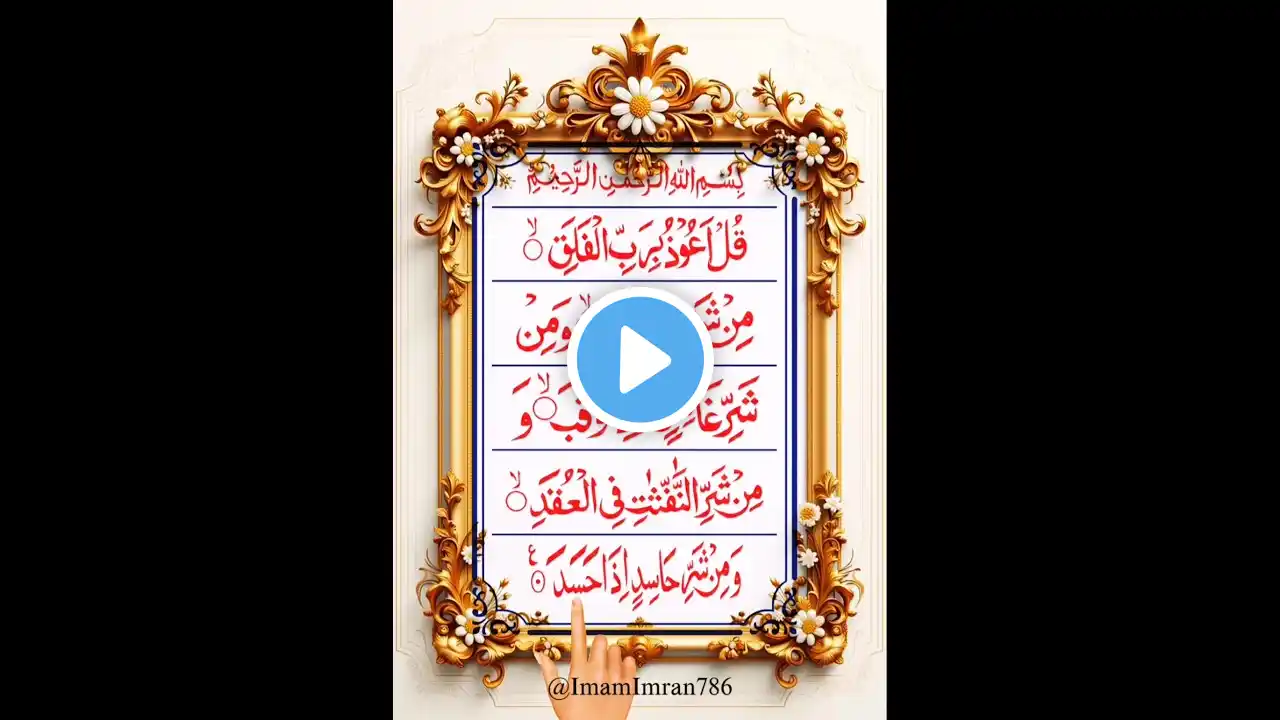 بِسْمِ اللهِ الرَّحْمٰنِ الرَّحِيْمِ
قُلْ اَعُوْذُ بِرَبِّ الْفَلَقِ ۙ
مِنْ وَمِنْ
شَرِّ وَقَبَ ۙ وَ
مِنْ شَرِّ النَّفّٰثٰتِ فِی الْعُقَدِ ۙ
وَ مِنْ شَرِّ حَاسِدٍ اِذَا حَسَدَ
@ImamImran786